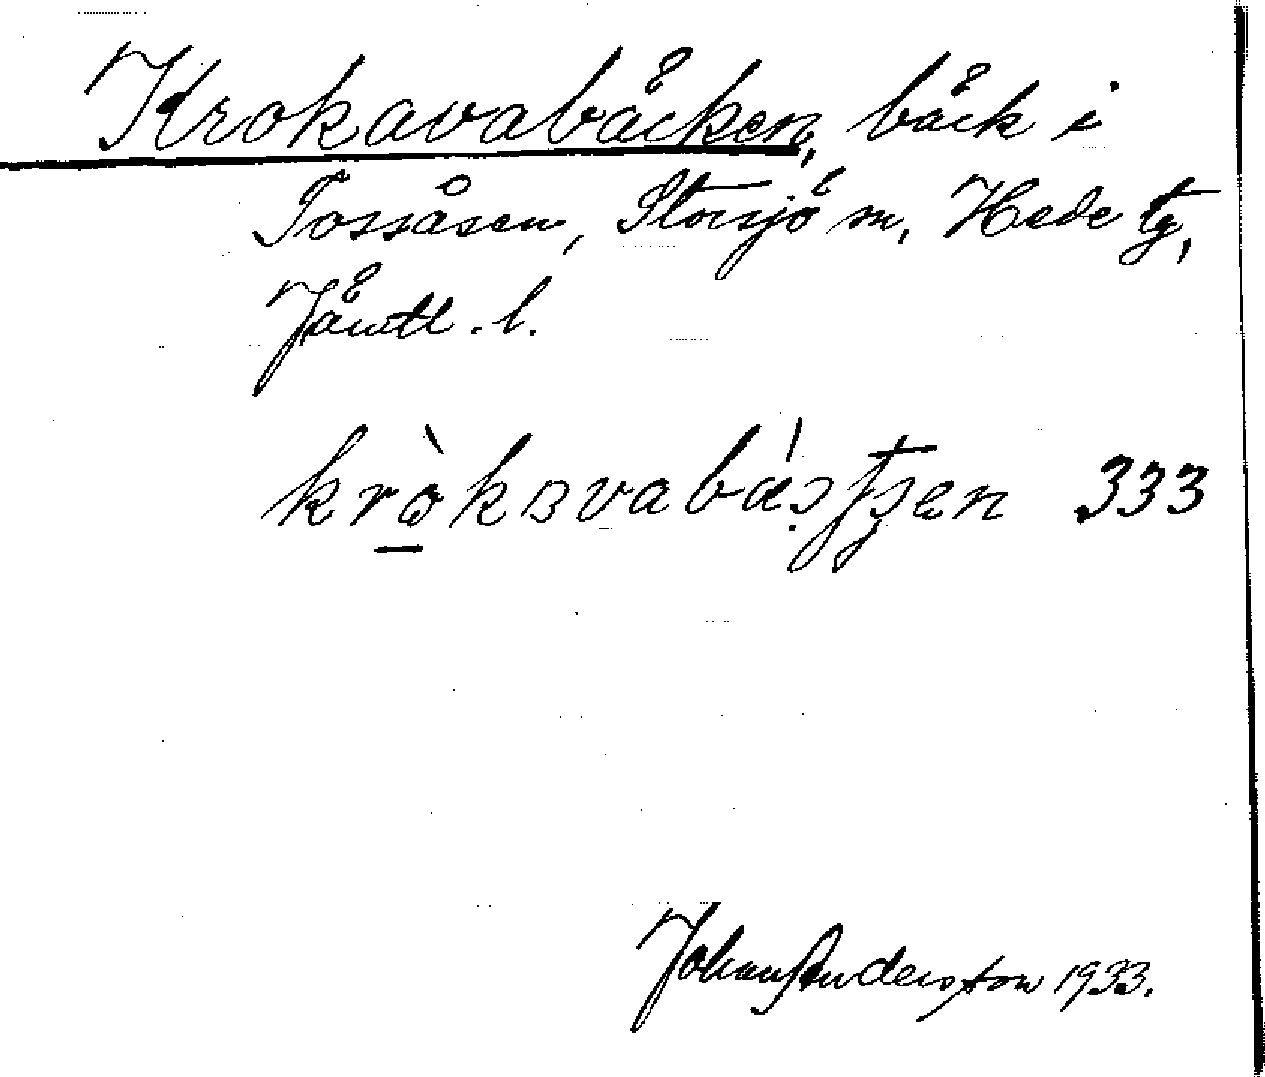 Krokavabäcken, bäck i
Tossåsen, Storsjö sn, Hede tg,
Jämtl. l.
333
Johan Andersson 1933.